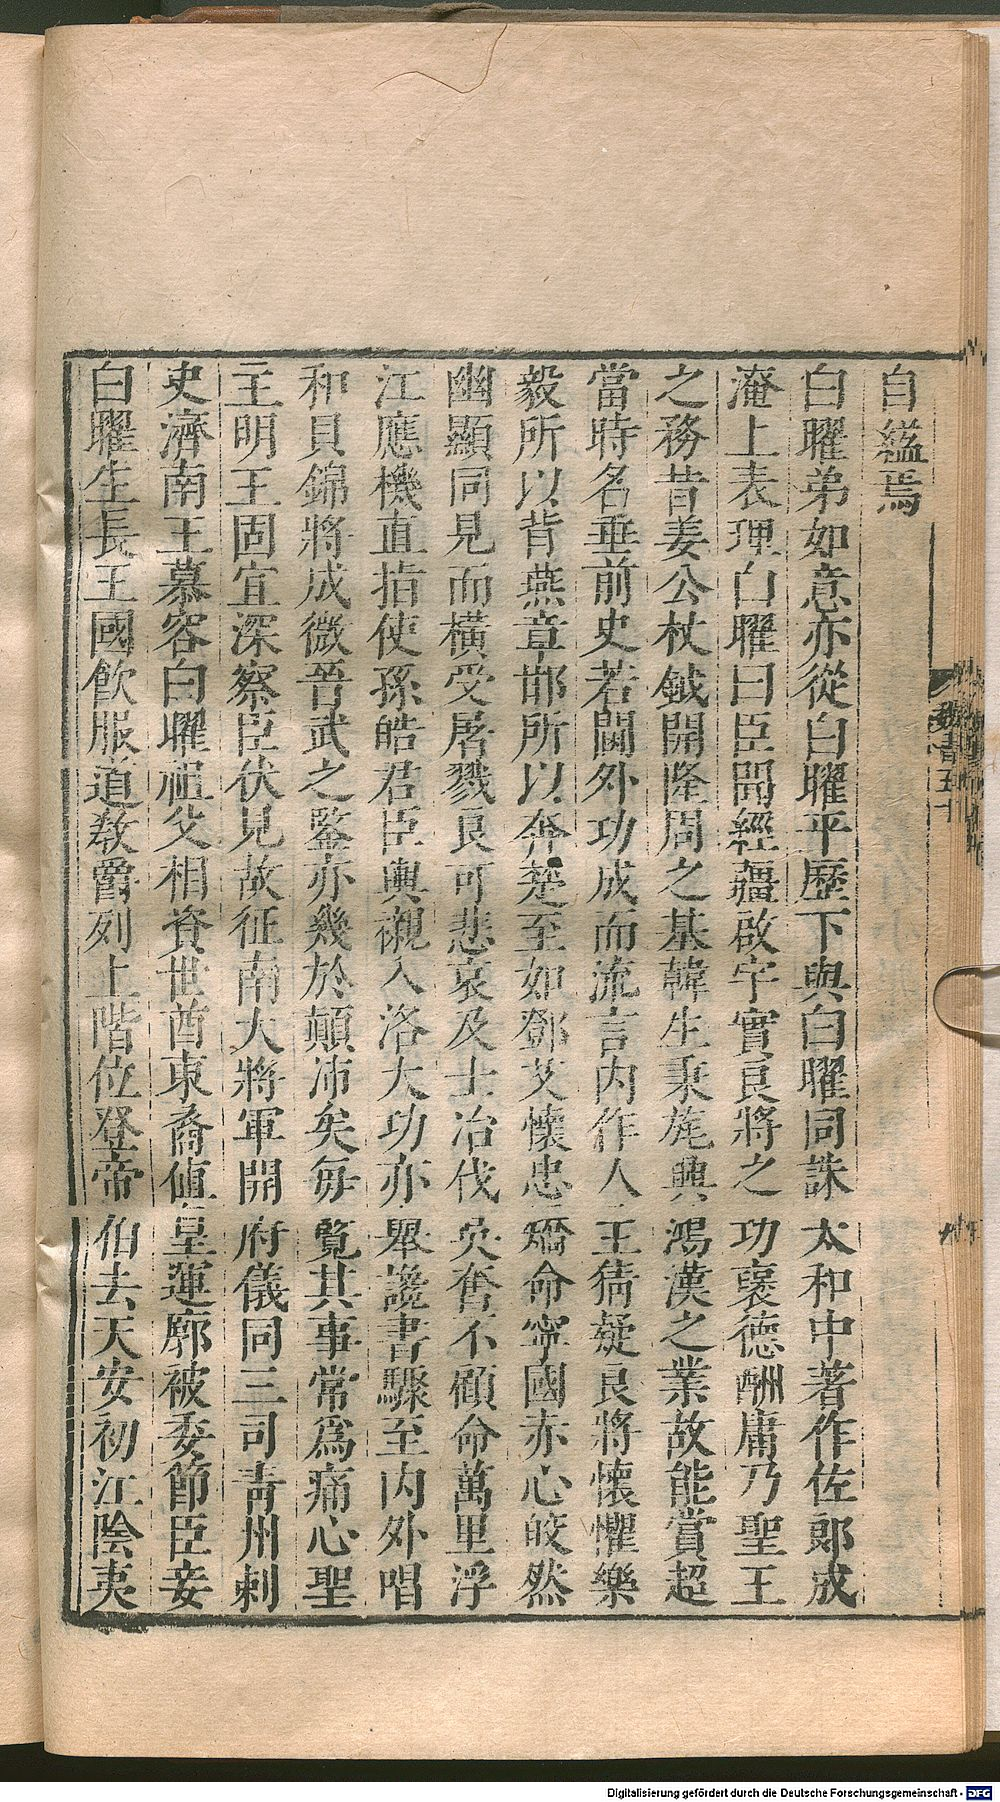 自縊焉
白曜弟如意亦從白曜平歷下與白曜同誅太和中著作佐郎成
淹上表理白曜曰臣聞經疆啟宇實良將之功褒德酬庸乃聖王
之務昔姜公杖鉞開隆周之基韓生秉旄興鴻漢之業故能賞超
當時名垂前史若閫外功成而流言內作人主猜疑良將懷懼樂
毅所以背燕章邯所以奔楚至如鄧艾懷忠矯命寧國赤心皎然
幽顯同見而橫受屠戮良可悲哀及士治伐吳奮不顧命萬里浮
江應機直指使孫皓君臣輿櫬入洛大功亦舉讒書驟至內外唱
和貝錦將成微晉武之鑒亦幾於顛沛矣每覽其事常爲痛心聖
主明王固宜深察臣伏見故征南大將軍開府儀同三司青州刺
史濟南王慕容白曜祖父相資世酋東裔值皇運廓被委節臣妾
白曜生長王國飲服道教爵列上階位登帝伯去天安初江陰夷
魏書五十
Digitalisierung gefördert durch die Deutsche Forschungsgemeinschaft - DFG